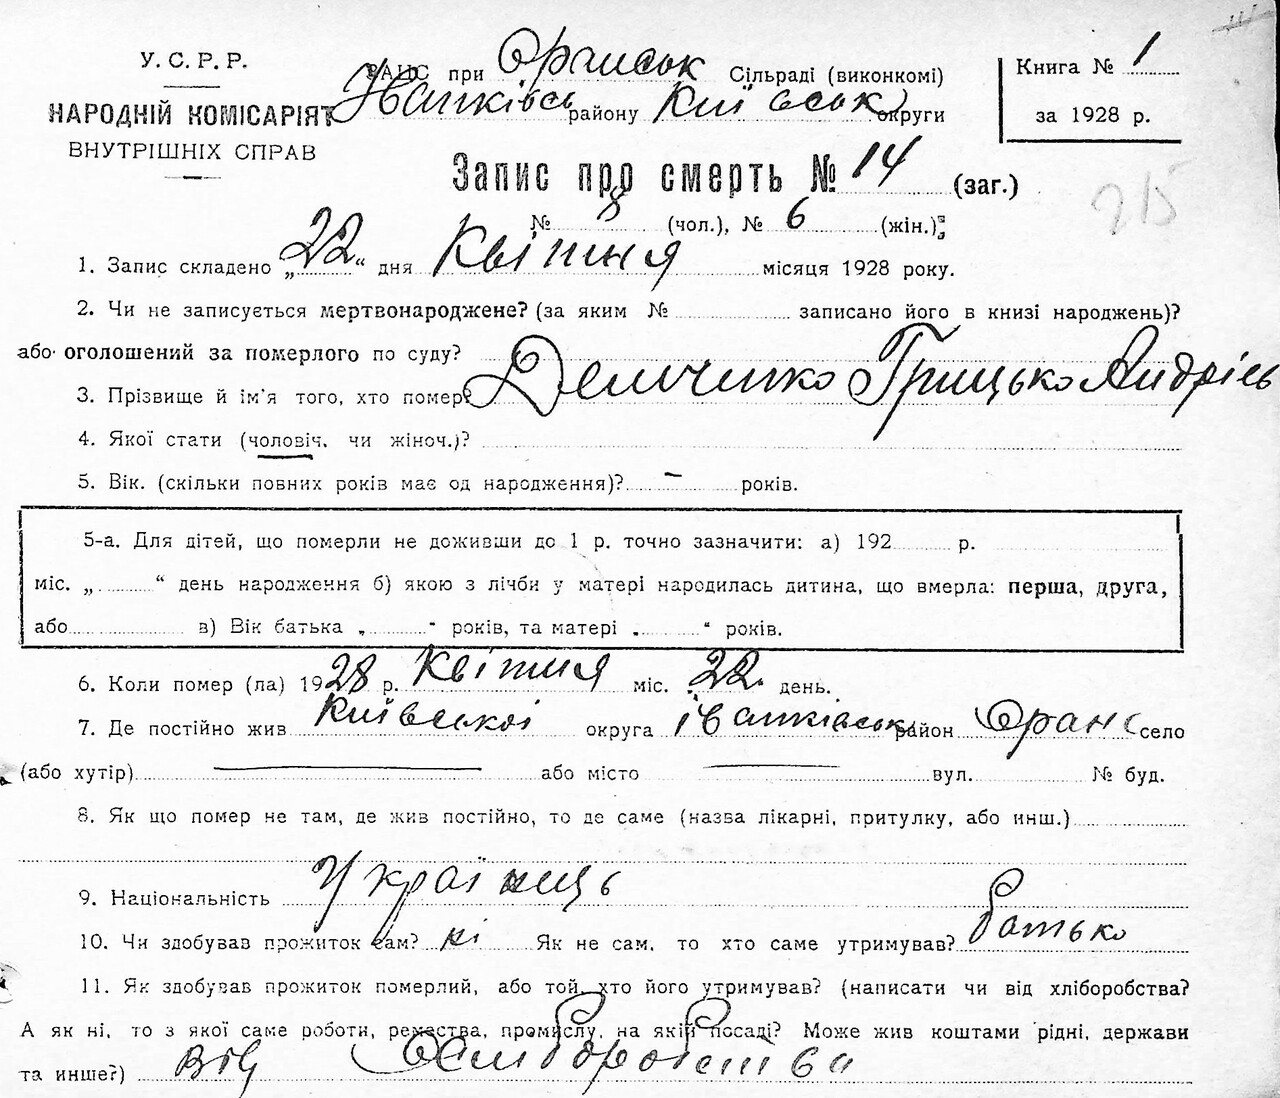 У. С. Р. Р.
НАРОДНІЙ КОМІСАРІЯТ
ВНУТРІШНІХ СПРАВ
РАНС при Оранськ Сільраді (виконкомі)
Іванківсь району Київськ округи
Книга № 1
за 1928 р.
Запис про смерть № 14 (заг.)
215
№ 8 (чол.), № 6 (жін.);
1. Запис складено „22“ дня Квітня місяця 1928 року.
2. Чи не записується мертвонароджене? (за яким № записано його в книзі народжень)?
або оголошений за померлого по суду?
3. Прізвище й ім'я того, хто помер? Демченко Грицько Андрієв
4. Якої стати (чоловіч. чи жіноч.)?
5. Вік. (скільки повних років має од народження)? — років.
5-а. Для дітей, що померли не доживши до 1 р. точно зазначити: а) 192 р.
міс. „ “ день народження б) якою з лічби у матері народилась дитина, що вмерла: перша, друга,
або в) Вік батька „ “ років, та матері „ “ років.
6. Коли помер (ла) 1928 р. Квітня міс. 22 день.
7. Де постійно жив Київської округа Іванківськ район Оранс село
(або хутір) — або місто — вул. № буд.
8. Як що помер не там, де жив постійно, то де саме (назва лікарні, притулку, або инш.)
9. Національність Українець
10. Чи здобував прожиток сам? ні Як не сам, то хто саме утримував? батько
11. Як здобував прожиток померлий, або той, хто його утримував? (написати чи від хліборобства?
А як ні, то з якої саме роботи, ремества, промислу, на якій посаді? Може жив коштами рідні, держави
та инше?) від хліборобства